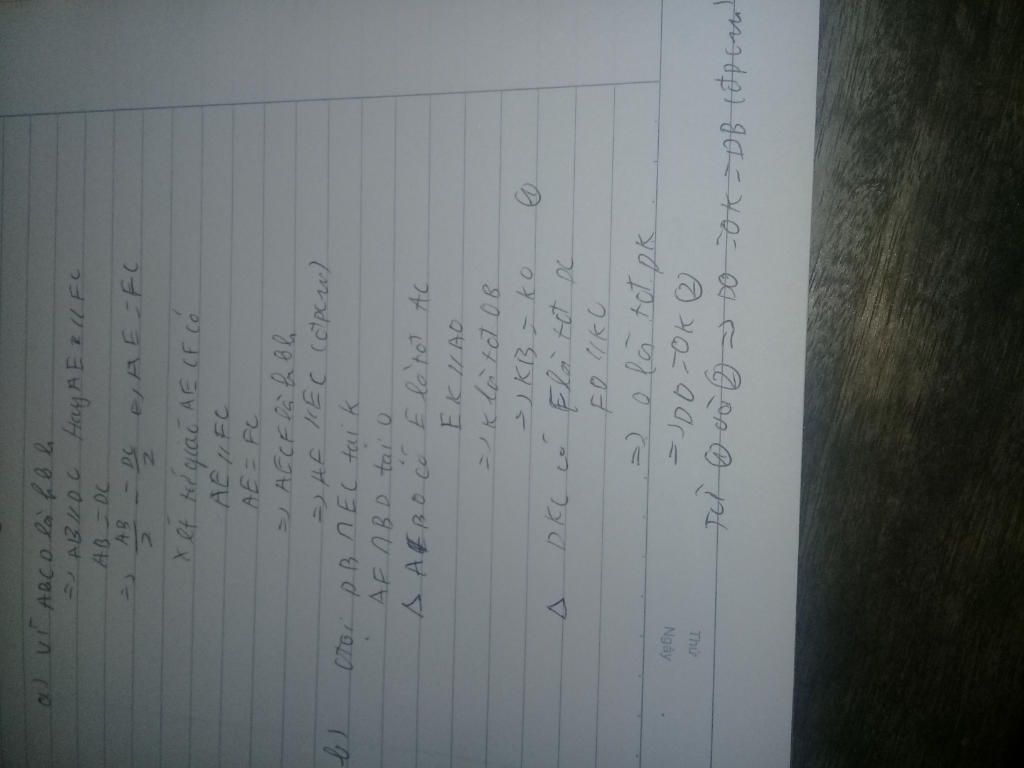 a) Vì ABCD là hbh
=> AB // DC Hay AE // FC
AB = DC
=> AB/2 = DC/2 AE = FC
Xét tứ giác AECF có
AE // FC
AE = FC
=> AECF là hbh
=> AF // EC (đpcm)
b) DB ∩ EC tại K
AF ∩ BD tại O
Δ ABO có E là tđ AC
EK // AO
=> K là tđ OB
=> KB = KO ①
Δ DKC có F là tđ DC
FO // KC
=> O là tđ DK
=> DO = OK ②
Thứ
Ngày
Từ ① và ② => DO = OK = DB (đpcm)